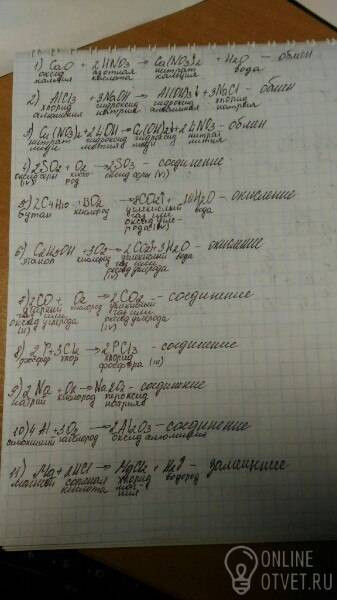 1) CaO + 2HNO3 → Ca(NO3)2 + H2O - обмен
оксид кальция азотная кислота нитрат кальция вода
2) AlCl3 + 3NaOH → Al(OH)3↓ + 3NaCl - обмен
хлорид алюминия гидроксид натрия гидроксид алюминия хлорид натрия
3) Cu(NO3)2 + 2LiOH → Cu(OH)2↓ + 2LiNO3 - обмен
нитрат меди гидроксид лития гидроксид меди нитрат лития
4) 2SO2 + O2 → 2SO3 - соединение
оксид серы (IV) кислород оксид серы (VI)
5) 2C4H10 + 13O2 → 8CO2↑ + 10H2O - окисление
бутан кислород углекислый газ или оксид углерода (IV) вода
6) C2H5OH + 3O2 → 2CO2↑ + 3H2O - окисление
этанол кислород углекислый газ или оксид углерода (IV) вода
7) 2CO + O2 → 2CO2 - соединение
угарный газ или оксид углерода (II) кислород углекислый газ или оксид углерода (IV)
8) 2P + 3Cl2 → 2PCl3 - соединение
фосфор хлор хлорид фосфора (III)
9) 2Na + O2 → Na2O2 - соединение
натрий кислород пероксид натрия
10) 4Al + 3O2 → 2Al2O3 - соединение
алюминий кислород оксид алюминия
11) Mg + 2HCl → MgCl2 + H2↑ - замещение
магний соляная кислота хлорид магния водород
ONLINE
OTVET.RU